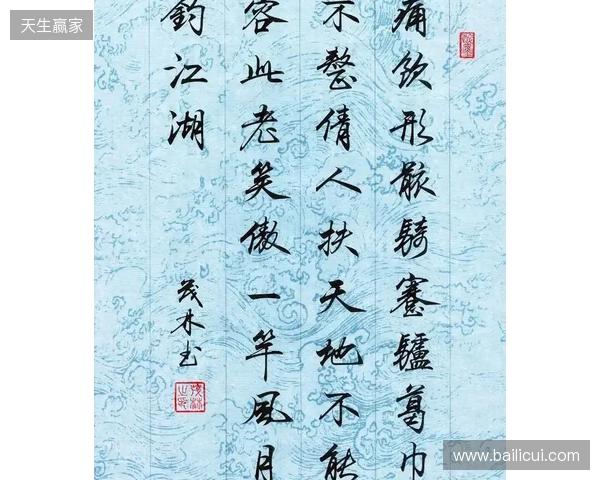 天生赢家
痛飲形骸騎蹇驢葛巾
不整倩人扶天地不能
容此老笑傲一竿風月
釣江湖
茂林书
www.bailicui.com